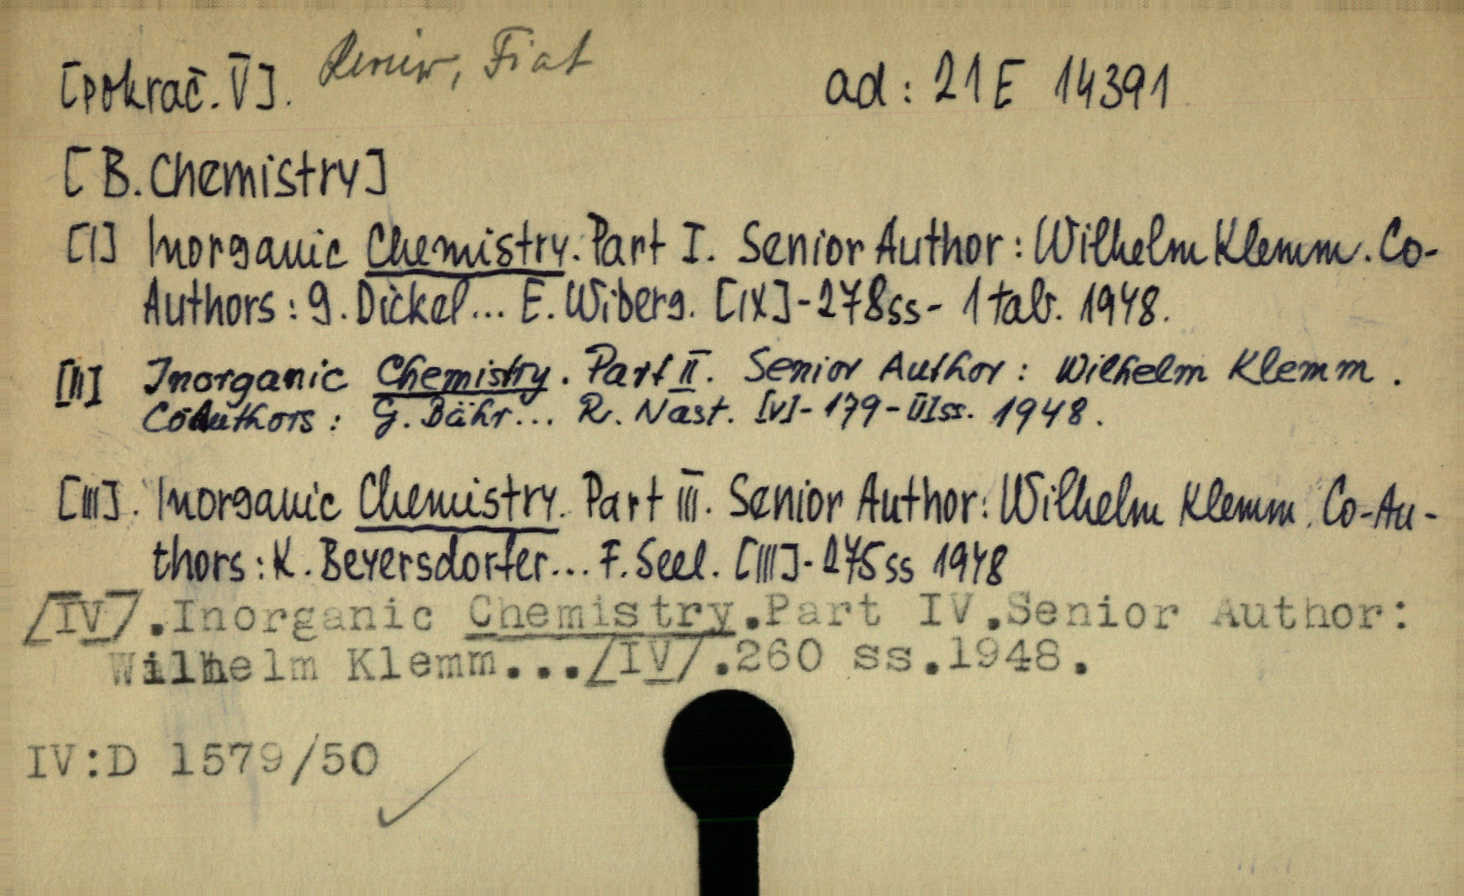 [pokrač. V]. Review, Fiat ad: 21 E 14391
[B. Chemistry]
[I] Inorganic Chemistry. Part I. Senior Author: Wilhelm Klemm. Co-
Authors: G. Dickel... E. Wiberg. [IX]-278ss- 1 tab. 1948.
[II] Inorganic Chemistry. Part II. Senior Author: Wilhelm Klemm.
CoAuthors: G. Bähr... R. Nast. [V]-179-[II]ss. 1948.
[III]. Inorganic Chemistry. Part III. Senior Author: Wilhelm Klemm. Co-Au-
thors: K. Beyersdorfer... F. Seel. [III]-275ss 1948
/IV/.Inorganic Chemistry.Part IV.Senior Author:
Wilhelm Klemm.../IV/.260 ss.1948.
IV:D 1579/50